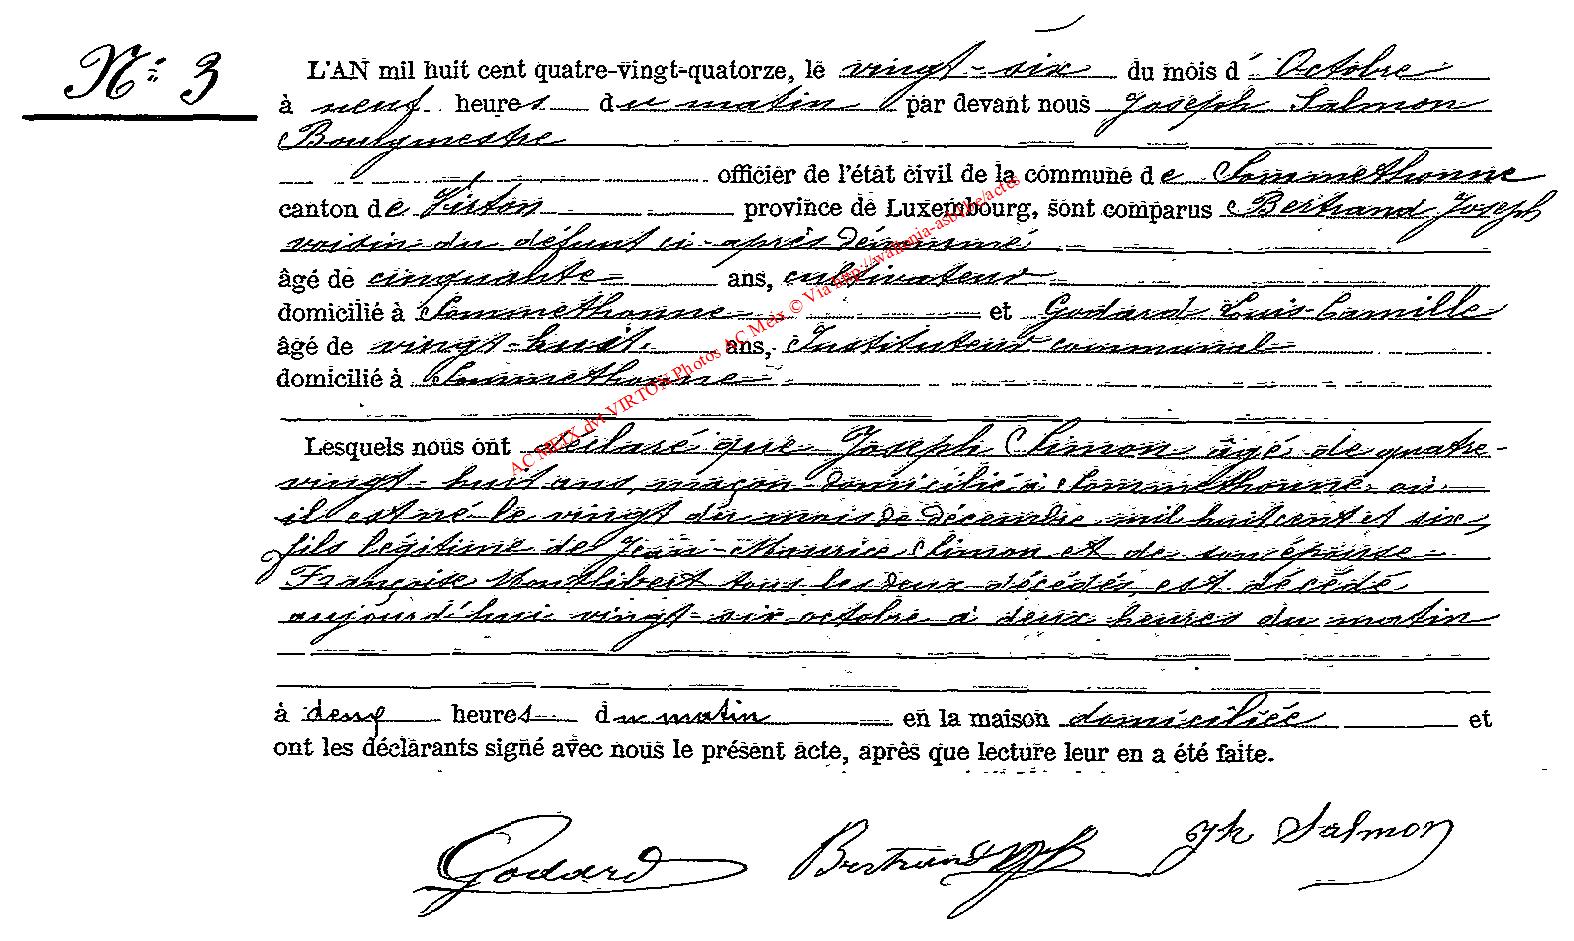 N° 3
L'AN mil huit cent quatre-vingt-quatorze, le vingt-six du mois d'Octobre
à neuf heures du matin par devant nous Joseph Salmon
Bourgmestre
officier de l'état civil de la commune de Sommethonne
canton de Virton province de Luxembourg, sont comparus Bertrand Joseph
voisin du défunt ci-après dénommé
âgé de cinquante ans, cultivateur
domicilié à Sommethonne et Godard Luis-Camille
âgé de vingt-huit ans, Instituteur communal
domicilié à Sommethonne
Lesquels nous ont déclaré que Joseph Simon âgé de quatre-
vingt-huit ans, maçon domicilié à Sommethonne où
il est né le vingt du mois de décembre mil huit cent et six,
fils légitime de Jean-Maurice Simon et de son épouse
Françoise Montlibert tous les deux décédés, est décédé
aujourd'hui vingt-six octobre à deux heures du matin
à deux heures du matin en la maison domiciliée et
ont les déclarants signé avec nous le présent acte, après que lecture leur en a été faite.
Godard Bertrand Jph Salmon
AC MEIX dvt VIRTON Photos AC Meix © Via http://wallonia-asbl.be/actes